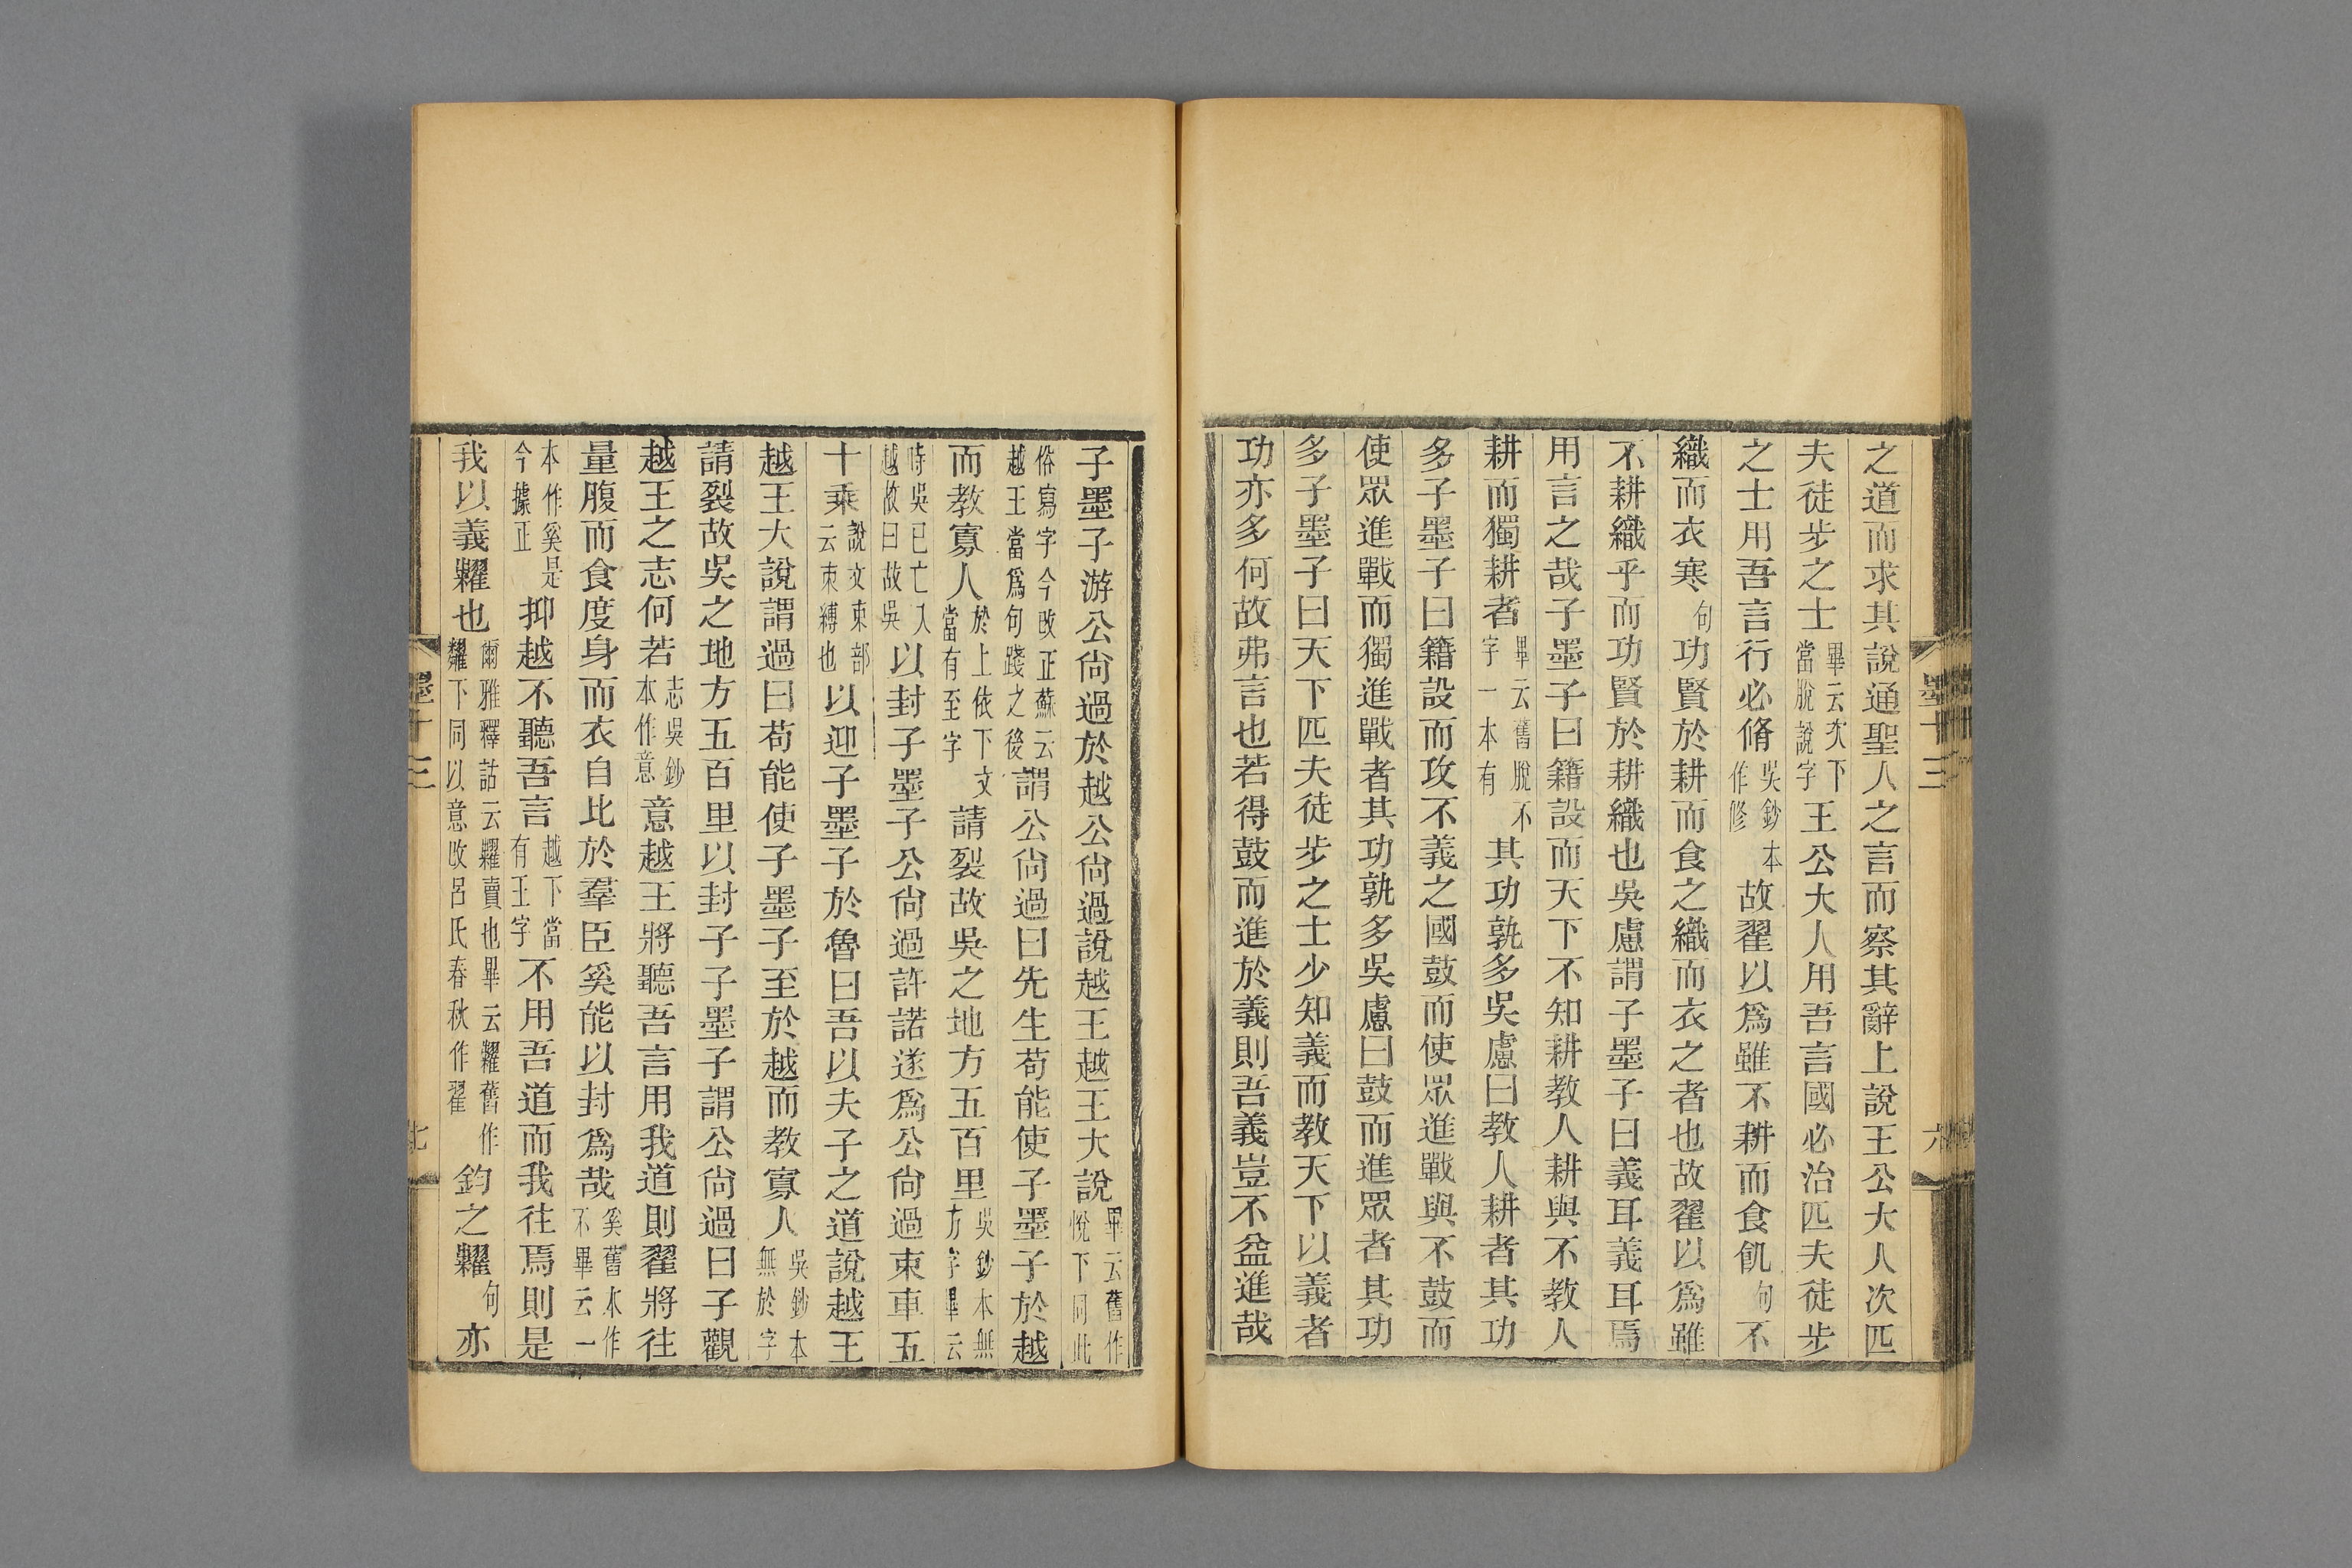 之道而求其說通聖人之言而察其辭上說王公大人次匹
夫徒步之士畢云次下當脫說字王公大人用吾言國必治匹夫徒步
之士用吾言行必脩吳鈔本作修故翟以爲雖不耕而食飢句不
織而衣寒句功賢於耕而食之織而衣之者也故翟以爲雖
不耕織乎而功賢於耕織也吳慮謂子墨子曰義耳義耳焉
用言之哉子墨子曰籍設而天下不知耕教人耕與不教人
耕而獨耕者畢云舊脫不字一本有其功孰多吳慮曰教人耕者其功
多子墨子曰籍設而攻不義之國鼓而使眾進戰與不鼓而
使眾進戰而獨進戰者其功孰多吳慮曰鼓而進眾者其功
多子墨子曰天下匹夫徒步之士少知義而教天下以義者
功亦多何故弗言也若得鼓而進於義則吾義豈不益進哉
墨十三
六
子墨子游公尙過於越公尙過說越王越王大說畢云舊作悅下同此
俗寫字今改正蘇云越王當爲句踐之後謂公尙過曰先生苟能使子墨子於越
而教寡人於上依下文當有至字請裂故吳之地方五百里吳鈔本無方字畢云
時吳已亡入越故曰故吳以封子墨子公尙過許諾遂爲公尙過束車五
十乘說文束部云束縛也以迎子墨子於魯曰吾以夫子之道說越王
越王大說謂過曰苟能使子墨子至於越而教寡人吳鈔本無於字
請裂故吳之地方五百里以封子子墨子謂公尙過曰子觀
越王之志何若志吳鈔本作意意越王將聽吾言用我道則翟將往
量腹而食度身而衣自比於羣臣奚能以封爲哉奚舊本作不畢云一
本作奚是今據正抑越不聽吾言越下當有王字不用吾道而我往焉則是
我以義糶也爾雅釋詁云糶賣也畢云糶舊作糴下同以意改呂氏春秋作翟鈞之糶句亦
墨十三
七